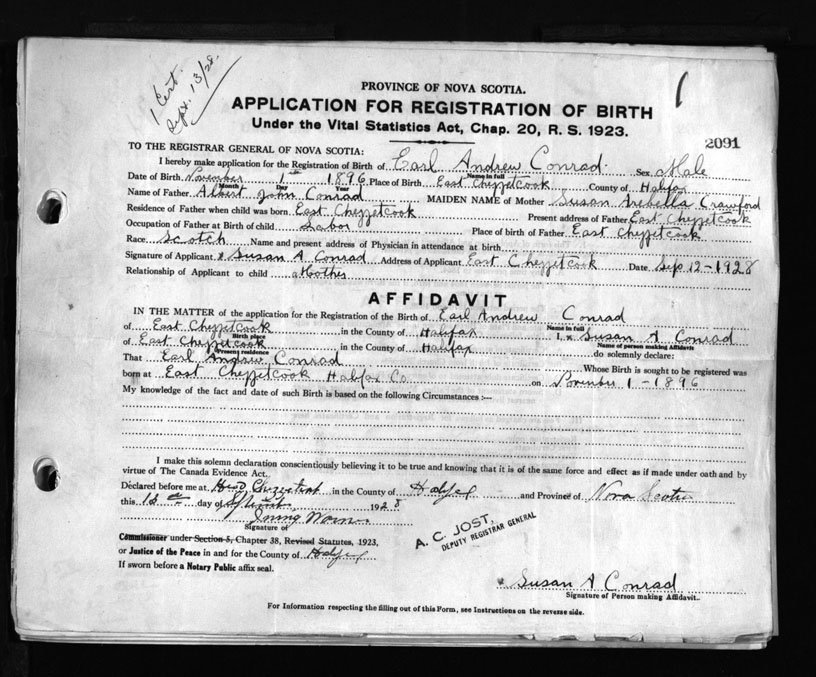 1 Cert.
Sept. 13/28
PROVINCE OF NOVA SCOTIA.
APPLICATION FOR REGISTRATION OF BIRTH
Under the Vital Statistics Act, Chap. 20, R. S. 1923.
2091
TO THE REGISTRAR GENERAL OF NOVA SCOTIA:
I hereby make application for the Registration of Birth of Earl Andrew Conrad. Sex Male
Name in full
Date of Birth November 1st 1896 Place of Birth East Chezzetcook County of Halifax
Month Day Year
Name of Father Albert John Conrad MAIDEN NAME of Mother Susan Arebella Crawford
Residence of Father when child was born East Chezzetcook Present address of Father East Chezzetcook
Occupation of Father at Birth of child Labor Place of birth of Father East Chezzetcook
Race Scotch Name and present address of Physician in attendance at birth
Signature of Applicant x Susan A Conrad Address of Applicant East Chezzetcook Date Sep 12-1928
Relationship of Applicant to child Mother
AFFIDAVIT
IN THE MATTER of the application for the Registration of the Birth of Earl Andrew Conrad
Name in full
of East Chezzetcook in the County of Halifax I, x Susan A Conrad
Birth place Name of person making Affidavit
of East Chezzetcook in the County of Halifax do solemnly declare:
Present residence
That Earl Andrew Conrad Whose Birth is sought to be registered was
born at East Chezzetcook Halifax Co on November 1-1896
My knowledge of the fact and date of such Birth is based on the following Circumstances :—
I make this solemn declaration conscientiously believing it to be true and knowing that it is of the same force and effect as if made under oath and by
virtue of The Canada Evidence Act.
Declared before me at Head Chezzetcook in the County of Halifax and Province of Nova Scotia
this 12th day of September 1928
Signature of
A. C. JOST,
DEPUTY REGISTRAR GENERAL
Commissioner under Section 5, Chapter 38, Revised Statutes, 1923,
or Justice of the Peace in and for the County of Halifax
If sworn before a Notary Public affix seal.
x Susan A Conrad
Signature of Person making Affidavit.
For Information respecting the filling out of this Form, see Instructions on the reverse side.